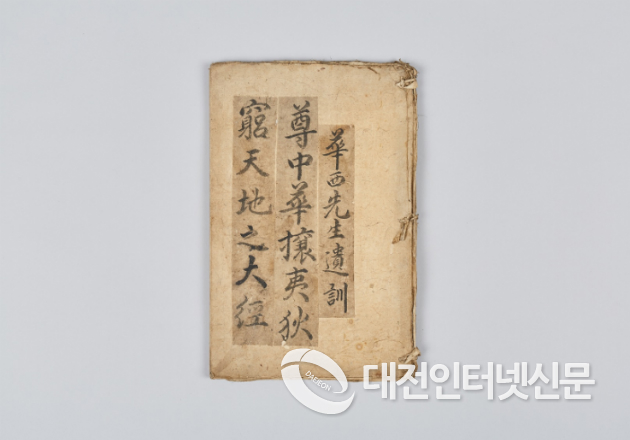 華西先生遺訓
尊中華攘夷狄
窮天地之大經
대전인터넷신문
DAEJEON